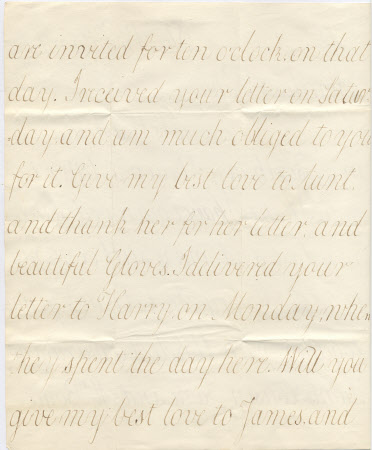 are invited for ten o'clock, on that
day. I received your letter on Satur-
day and am much obliged to you
for it. Give my best love to Aunt,
and thank her for her letter, and
beautiful Gloves. I delivered your
letter to Harry, on Monday, when
they spent the day here. Will you
give my best love to James, and